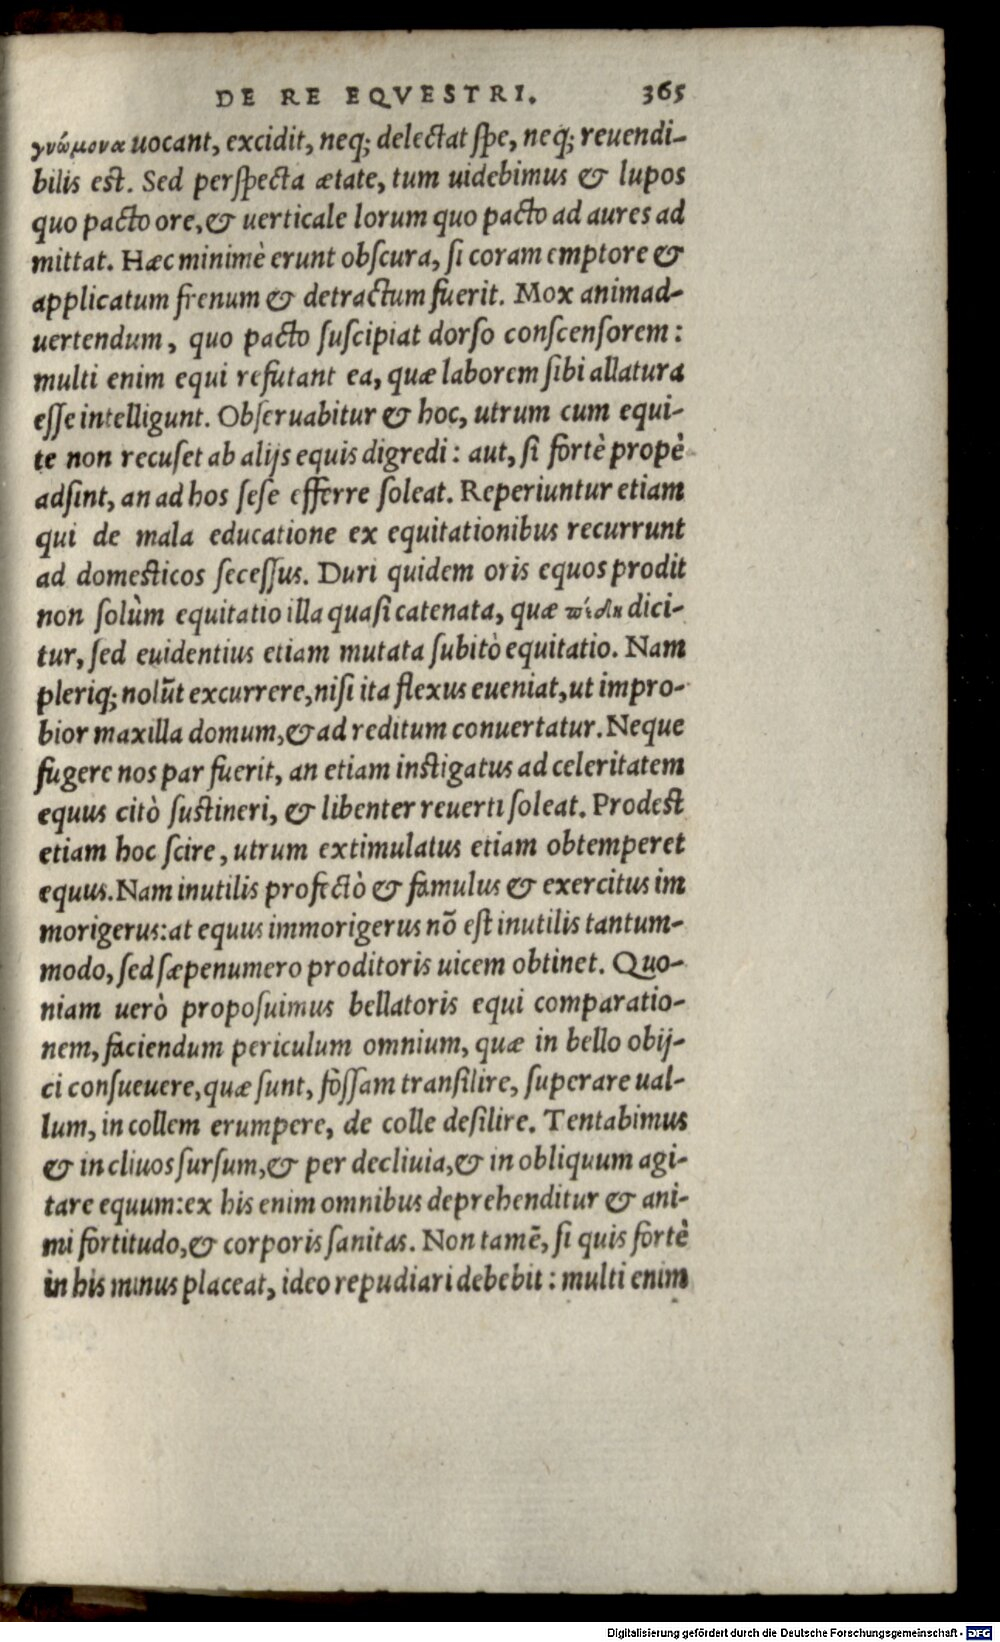 DE RE EQVESTRI. 365
γνώμονα uocant, excidit, neq; delectat ſpe, neq; reuendi-
bilis est. Sed perſpecta ætate, tum uidebimus & lupos
quo pacto ore, & uerticale lorum quo pacto ad aures ad
mittat. Hæc minimè erunt obſcura, ſi coram emptore &
applicatum frenum & detractum fuerit. Mox animad-
uertendum, quo pacto ſuſcipiat dorſo conſcenſorem:
multi enim equi refutant ea, quæ laborem ſibi allatura
eſſe intelligunt. Obſeruabitur & hoc, utrum cum equi-
te non recuſet ab alijs equis digredi: aut, ſi fortè propè
adſint, an ad hos ſeſe efferre ſoleat. Reperiuntur etiam
qui de mala educatione ex equitationibus recurrunt
ad domesticos ſeceſſus. Duri quidem oris equos prodit
non ſolùm equitatio illa quaſi catenata, quæ πέδη dici-
tur, ſed euidentius etiam mutata ſubitò equitatio. Nam
pleriq; nolūt excurrere, niſi ita flexus eueniat, ut impro-
bior maxilla domum, & ad reditum conuertatur. Neque
fugere nos par fuerit, an etiam instigatus ad celeritatem
equus citò ſustineri, & libenter reuerti ſoleat. Prodest
etiam hoc ſcire, utrum extimulatus etiam obtemperet
equus. Nam inutilis profectò & famulus & exercitus im
morigerus: at equus immorigerus nō eſt inutilis tantum-
modo, ſed ſæpenumero proditoris uicem obtinet. Quo-
niam uerò propoſuimus bellatoris equi comparatio-
nem, faciendum periculum omnium, quæ in bello obij-
ci conſueuere, quæ ſunt, foſſam tranſilire, ſuperare ual-
lum, in collem erumpere, de colle deſilire. Tentabimus
& in cliuos ſurſum, & per decliuia, & in obliquum agi-
tare equum: ex his enim omnibus deprehenditur & ani-
mi fortitudo, & corporis ſanitas. Non tamē, ſi quis fortè
in his minus placeat, ideo repudiari debebit: multi enim
Digitalisierung gefördert durch die Deutsche Forschungsgemeinschaft - DFG